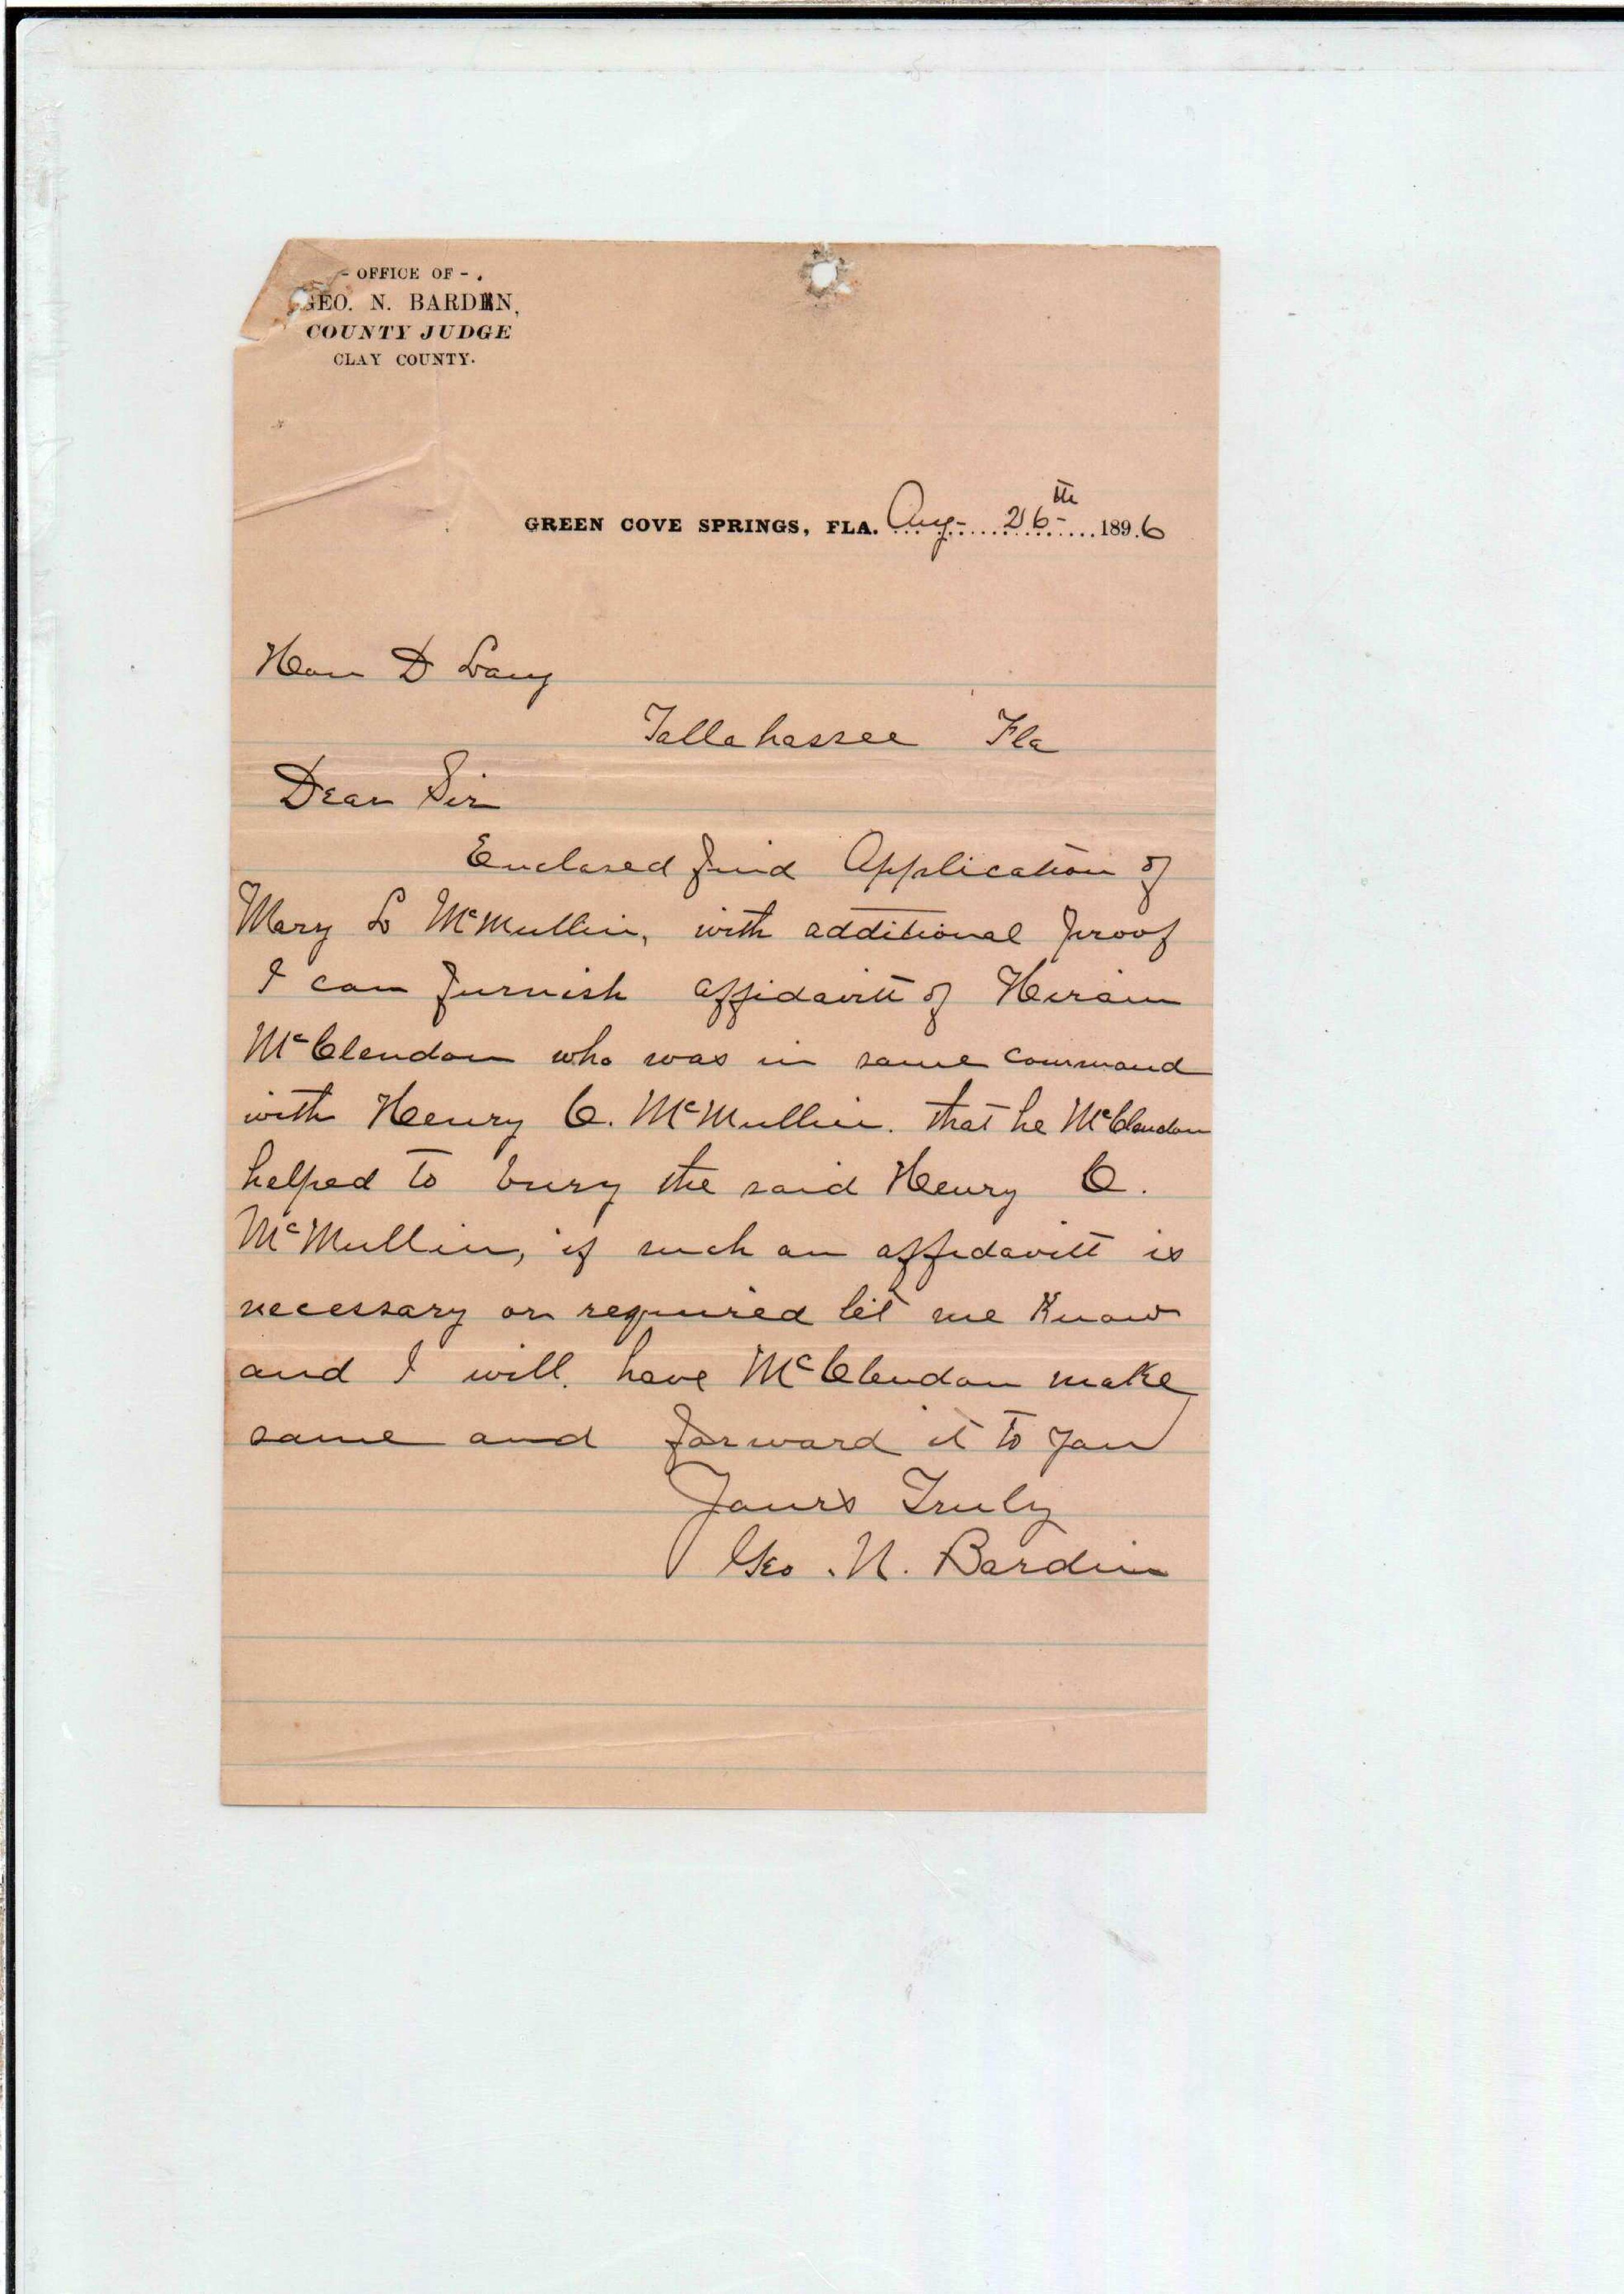 - OFFICE OF -
GEO. N. BARDEN,
COUNTY JUDGE
CLAY COUNTY.
GREEN COVE SPRINGS, FLA. Aug- 26-th 1896
Hon D Lang
Tallahassee Fla
Dear Sir
Enclosed find Application of
Mary L McMullin, with additional proof
I can furnish affidavitt of Hiram
McClendon who was in same command
with Henry C. McMullin. that he McClendon
helped to bury the said Henry C.
McMullin, if such an affidavitt is
necessary or required let me Know
and I will. have McClendon make
same and forward it to you
Yours Truly
Geo. N. Bardin